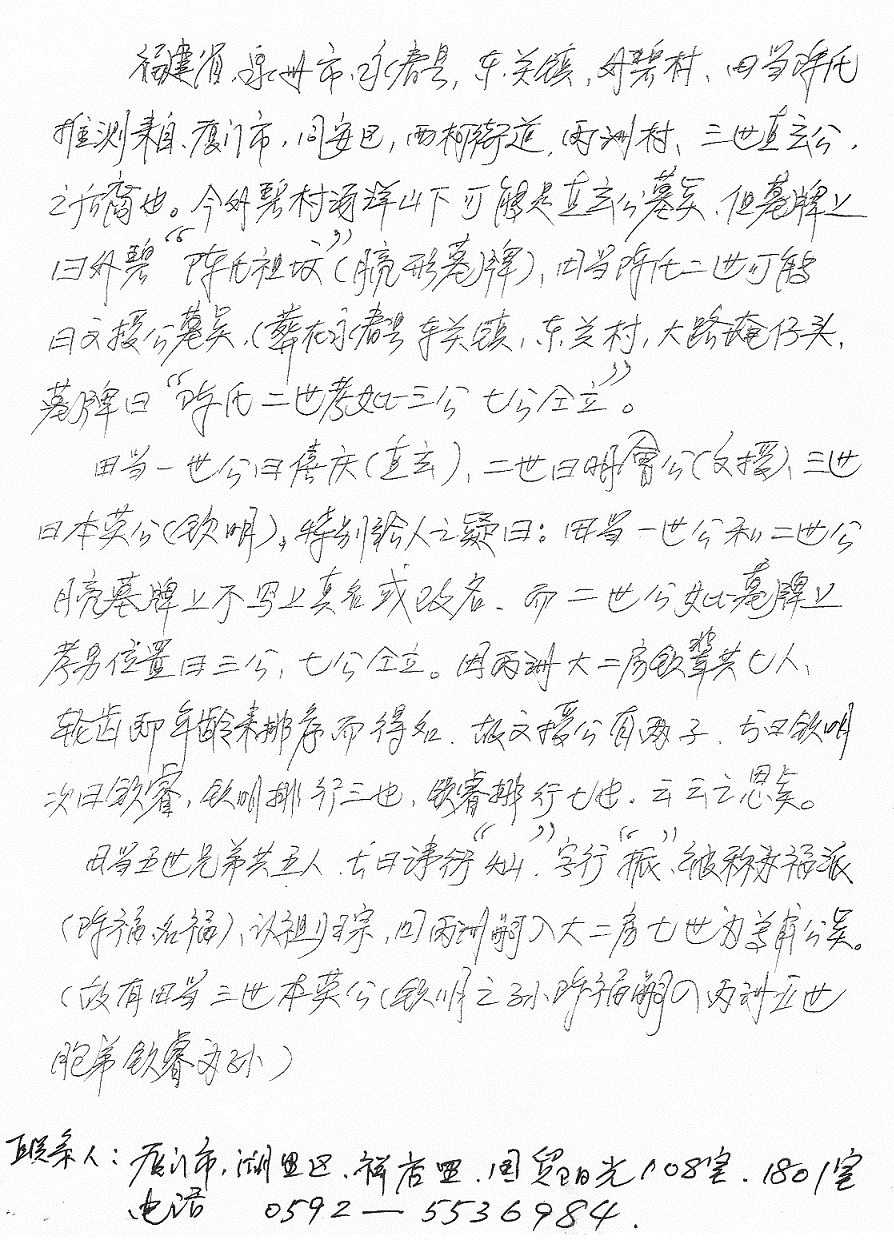 福建省、泉州市、永春县,东关镇,外碧村、田当陈氏
推测来自、厦门市,同安区,西柯街道,丙洲村、三世直玄公,
之后裔也。今外碧村海洋山下可能是直玄公墓矣、但墓牌上
曰外碧“陈氏祖坟”(腕形墓牌),田当陈氏二世可能
曰文援公墓矣,(葬在永春县东关镇,东关村,大路垵仔头,
墓牌曰“陈氏二世考妣三公七公仝立”。
田当一世公曰僖庆(直玄),二世曰明會公(文援)、三世
曰本英公(钦明),特别给人之疑曰:田当一世公和二世公
墓牌上不写上真名或改名、而二世公妣墓牌上
考男位置曰三公,七公仝立。因丙洲大二房钦辈共七人,
轮齿即年龄来排序而得知、故文援公有两子、长曰钦明
次曰钦睿,钦明排行三也,钦睿排行七也、云云之思矣。
田当五世兄弟共五人、长曰讳衍“灿”、字行“振”、被称为福派
(陈福名福),认祖归宗,回丙洲嗣入大二房七世为公矣。
(故有田当三世本英公(钦明)之孙陈福嗣入丙洲五世
胞弟钦睿为孙)
联系人:厦门市,湖里区、祥店里、国贸阳光108室、1801室
电话 0592—5536984.